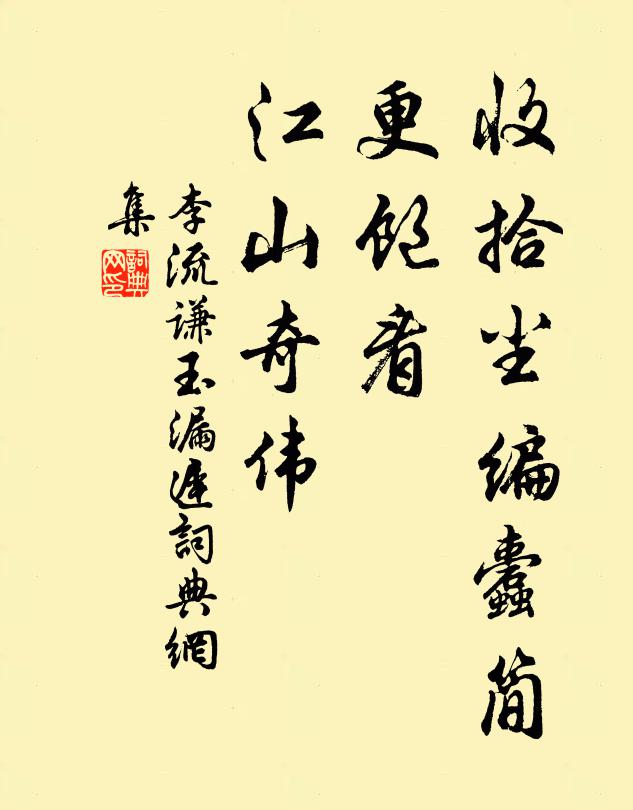 收拾尘编蠹简
更饱看
江山奇伟
李流谦玉漏遲詞典網
集
詞典网印